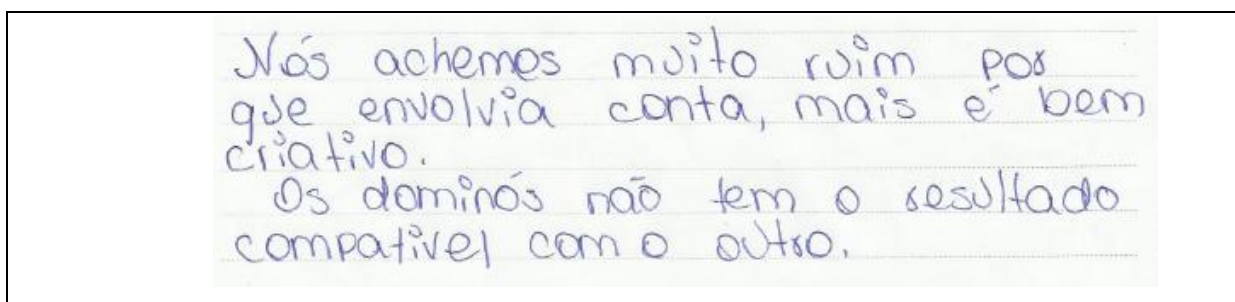 Nós achemos muito ruim por
que envolvia conta, mais é bem
criativo.
Os dominós não tem o resultado
compativel com o outro.